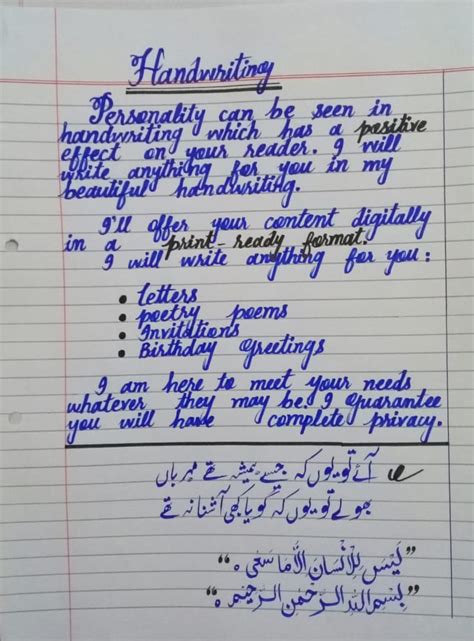 Handwriting
Personality can be seen in
handwriting which has a positive
effect on your reader. I will
write anything for you in my
beautiful handwriting.
I'll offer your content digitally
in a print-ready format.
I will write anything for you :
• letters
• poetry poems
• Invitations
• Birthday Greetings
I am here to meet your needs
whatever they may be. I guarantee
you will have complete privacy.
آئے تو یوں کہ جیسے ہمیشہ تھے مہرباں
بھولے تو یوں کہ گویا کبھی آشنا نہ تھے
”لَيْسَ لِلْاِنْسَانِ اِلَّا مَا سَعٰى ہ“
”بِسْمِ اللهِ الرَّحْمٰنِ الرَّحِيْمِ ہ“